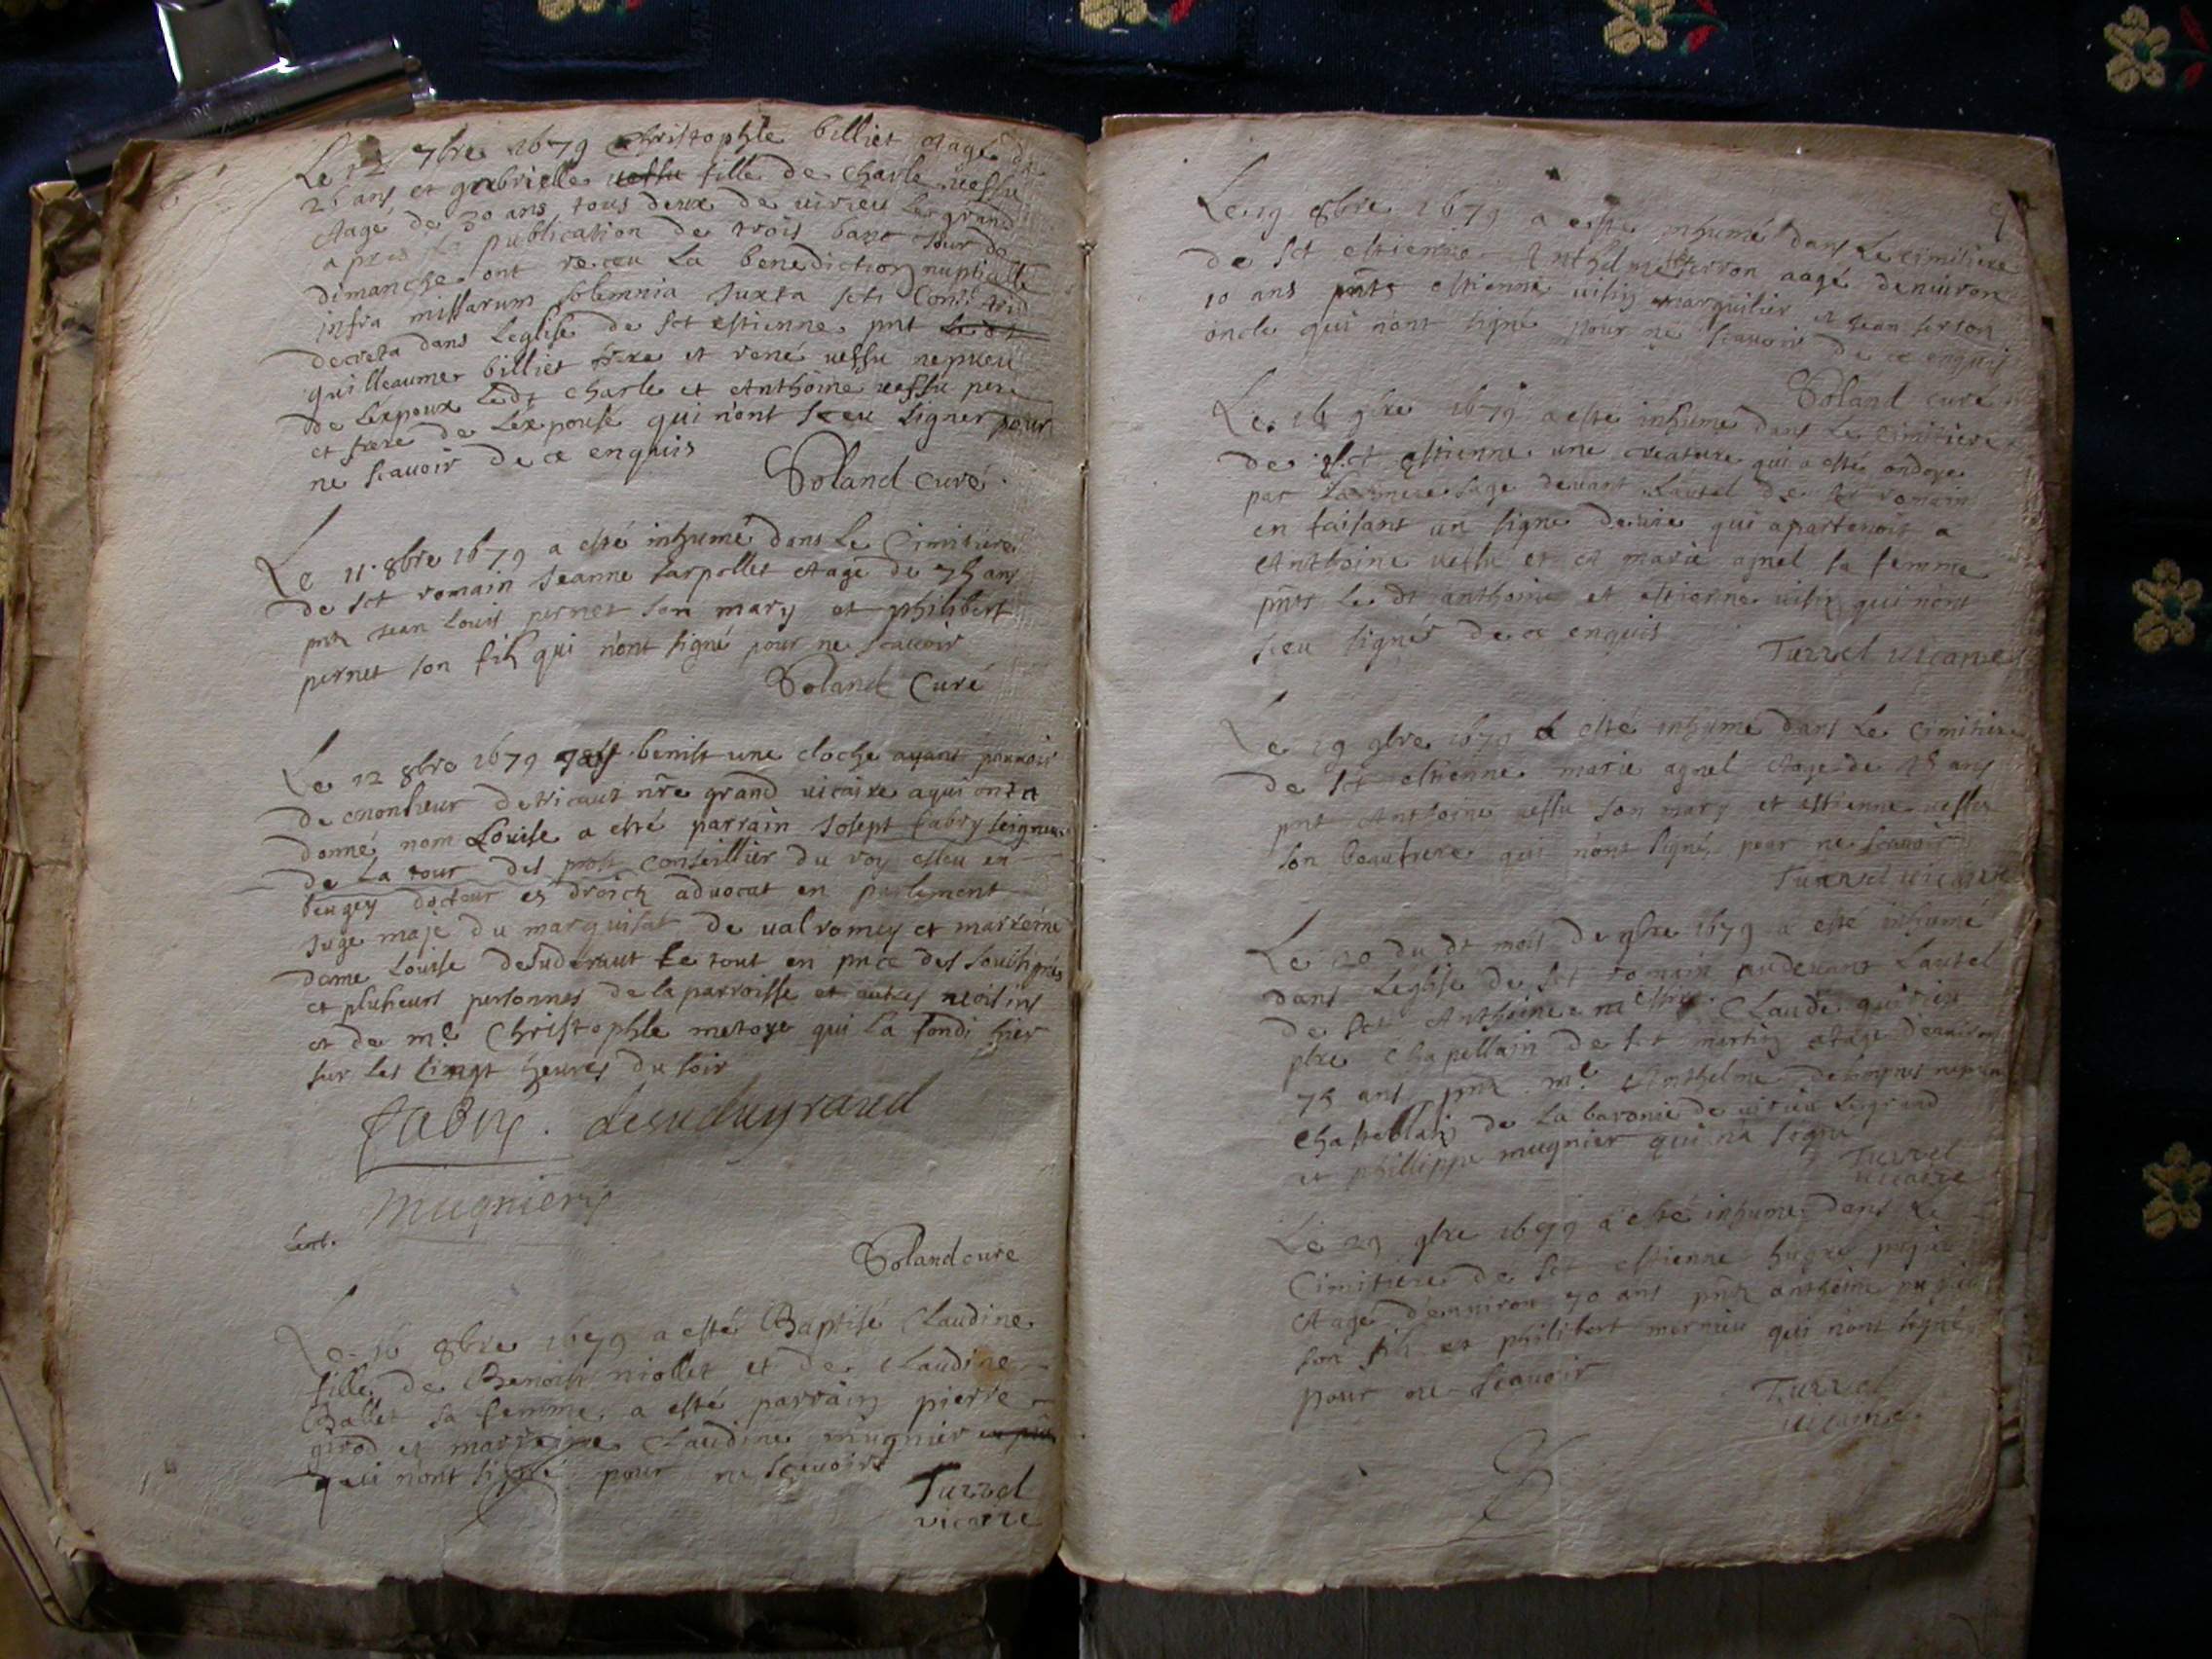 Le 12 7bre 1679 Christophle billiet Aagé de
26 ans et gabrielle uessu fille de Charle uessu
Aagé de 30 ans tous deux de uirieu Le grand
apres La publication de trois banc Jour de
dimanche ont receu La benediction nuptialle
infra missarum solemnia Juxta scti Conc. trid
decreta dans Leglise de sct estienne pnt Le dt
guilleaume billiet frere et rené uessu nepueu
de Lexpoux Le dt Charle et Anthoine uessu pere
et frere de Lexpouse qui n'ont sceu signer pour
ne scauoir de ce enquis
Poland curé
Le 11 8bre 1679 a esté inhumé dans Le Cimitiere
de sct romain Jeanne tarpollet Aage de 75 ans
pnt Jean Louis pernet son mary et philibert
pernet son fils qui n'ont signé pour ne scauoir
Poland Curé
Le 12 8bre 1679 benist une cloche ayant pouuoir
de monsieur de tricaut nre grand uicaire a qui on a
donné nom Louise a esté parrain Josept fabry seigneur
de La tour des Conseillier du roy esleu en
beugey docteur es droicts aduocat en parlement
Juge maje du marquisat de ualromey et marreine
dame Louise Le tout en pnce des soubsignés
et plusieurs personnes de la parroisse et autres uoisins
et de me Christophle metoye qui La fondi hier
sur Les Cinqt heures du soir
fabry. 
Mugnier
Poland cure
Le 16 8bre 1679 a esté Baptisé Claudine
fille de Benoist niollet et de Claudine
Ballet sa femme a esté parrain pierre
girod et marreine Claudine mugnier
qui n'ont signé pour ne scauoir
Turrel
vicaire
Le 19 8bre 1679 a esté inhumé dans Le cimitiere
de sct estienne Anthelme serron aagé denuiron
10 ans pnts estienne uisin marguilier et Jean serron
oncle qui n'ont signé pour ne scauoir de ce enquis
Poland curé
Le 16 9bre 1679 a esté inhumé dans Le Cimitiere
de sct estienne une creature qui a esté ondoye
par La mere sage deuant Lautel de sct romain
en faisant un signe de uie qui apartenoit a
Anthoine uessu et a marie agnel sa femme
pnts Le dt anthoine et estienne uisin qui n'ont
sceu signer de ce enquis
Turrel uicaire
Le 19 9bre 1679 a esté inhumé dans Le Cimitiere
de sct estienne marie agnel Aage de 18 ans
pnt Anthoine uessu son mary et estienne uessu
son beaufrere qui n'ont signé pour ne scauoir
Turrel uicaire
Le 20 du dt mois de 9bre 1679 a esté inhumé
dans Leglise de sct romain audeuant Lautel
de sct Anthoine messire Claude
pbre Chapellain de sct martin Aage denuiron
75 ans pnt me Anthelme nepueu
Chastellain de La baronie de uirieu Le grand
et phillippe mugnier qui n'a signé
Turrel
uicaire
Le 29 9bre 1679 a esté inhumé dans Le
Cimitiere de sct estienne
Aagé denuiron 70 ans pnts anthoine
son fils et philibert mermieu qui n'ont signé
pour ne scauoir
Turrel
uicaire